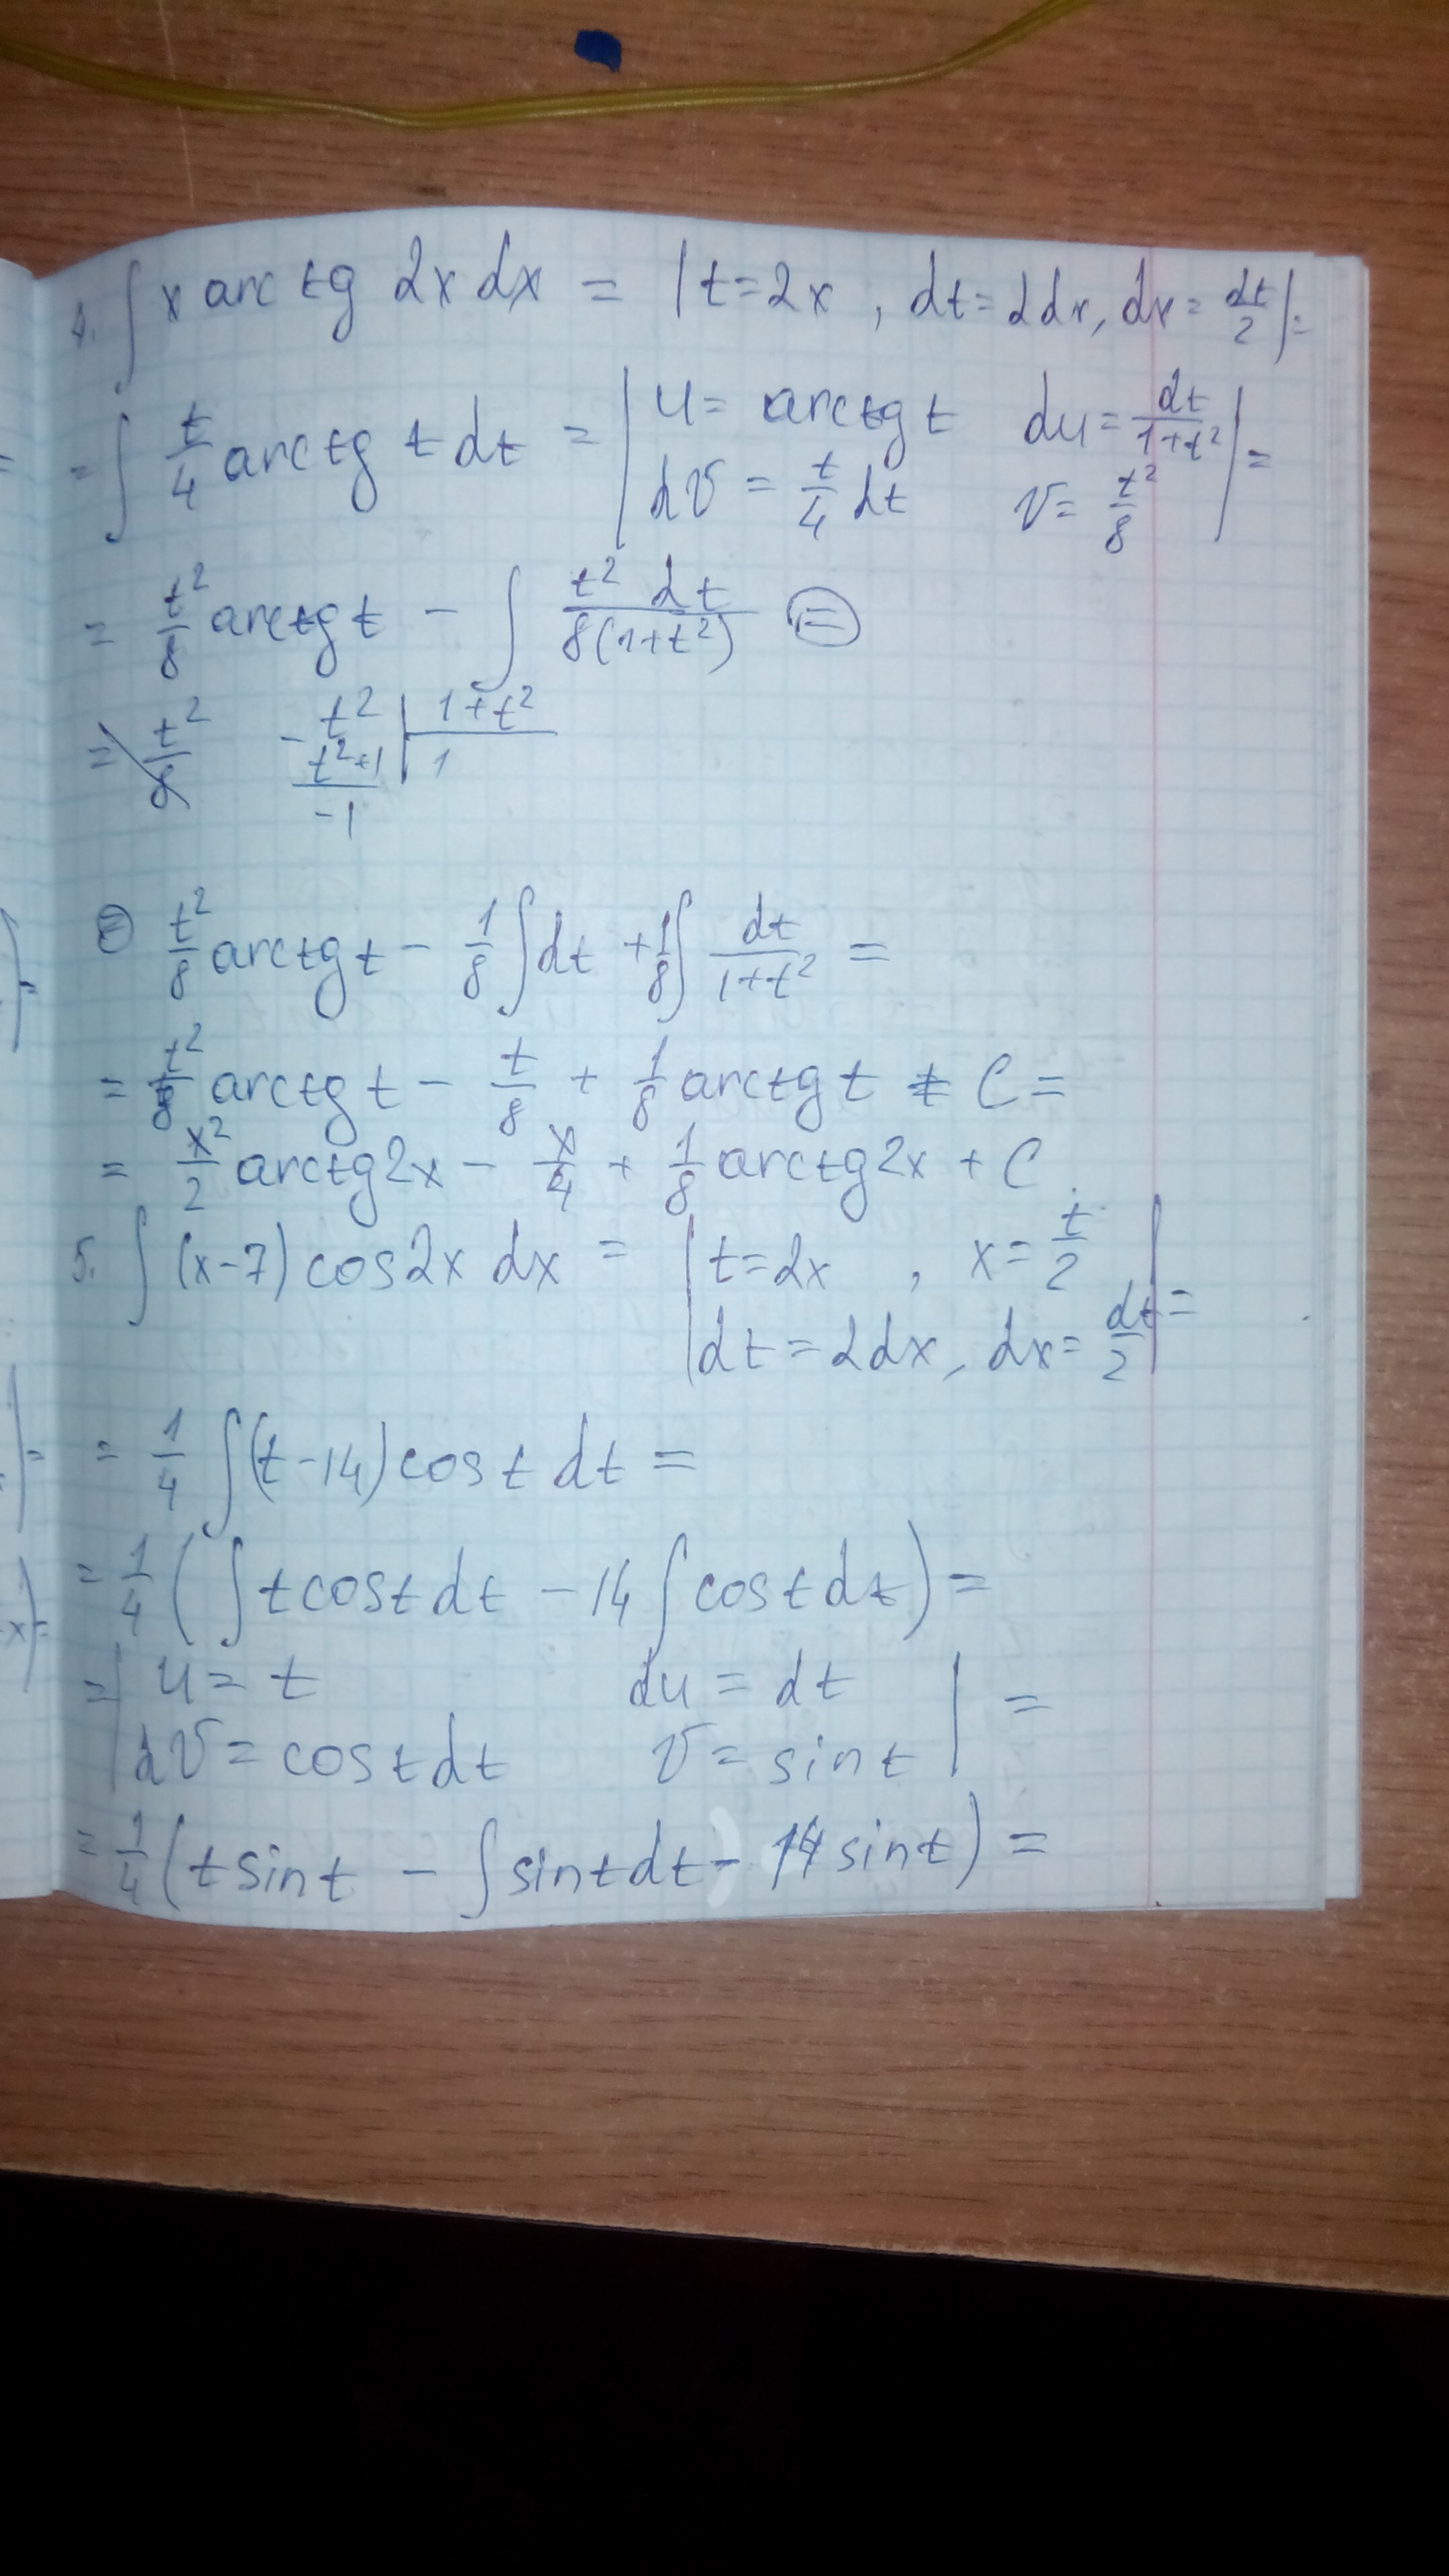 4. ∫ x arctg 2x dx = | t=2x , dt=2dx, dx= dt/2 | =
= ∫ t/4 arctg t dt = | u= arctg t   du= dt/(1+t²) | =
dv = t/4 dt   v= t²/8
= t²/8 arctg t − ∫ t² dt / 8(1+t²) ⊜
= t²/8   − t² | 1+t²
t²+1 | 1
-1
⊜ t²/8 arctg t − 1/8 ∫ dt + 1/8 ∫ dt/(1+t²) =
= t²/8 arctg t − t/8 + 1/8 arctg t + C =
= x²/2 arctg 2x − x/4 + 1/8 arctg 2x + C.
5. ∫ (x-7) cos 2x dx = | t=2x , x= t/2 | =
dt = 2dx, dx= dt/2
= 1/4 ∫ (t-14) cos t dt =
= 1/4 ( ∫ t cos t dt − 14 ∫ cos t dt ) =
= | u= t   du = dt | =
dv = cos t dt   v= sin t
= 1/4 ( t sin t − ∫ sin t dt − 14 sin t ) =